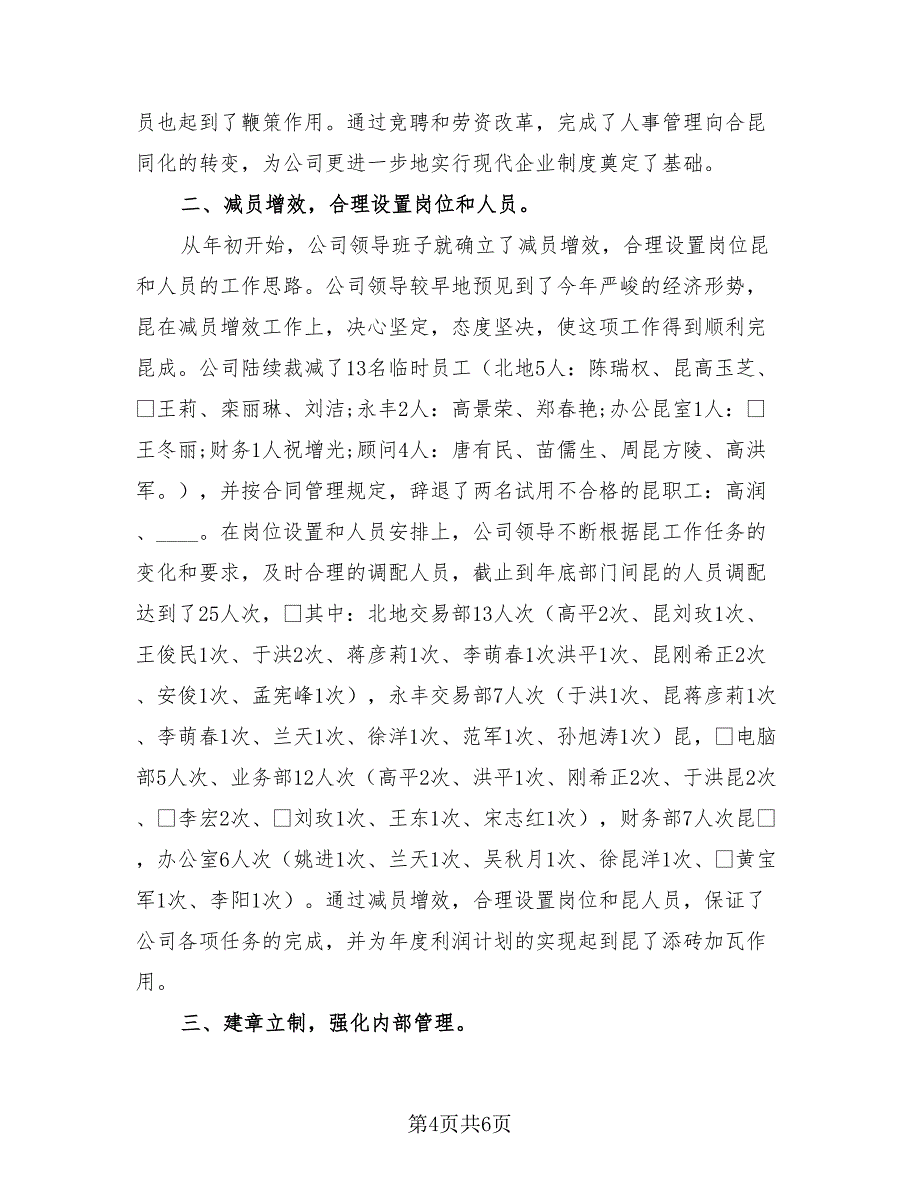 员也起到了鞭策作用。通过竞聘和劳资改革，完成了人事管理向合昆
同化的转变，为公司更进一步地实行现代企业制度奠定了基础。
二、减员增效，合理设置岗位和人员。
从年初开始，公司领导班子就确立了减员增效，合理设置岗位昆
和人员的工作思路。公司领导较早地预见到了今年严峻的经济形势，
昆在减员增效工作上，决心坚定，态度坚决，使这项工作得到顺利完
昆成。公司陆续裁减了13名临时员工（北地5人：陈瑞权、昆高玉芝、
□王莉、栾丽琳、刘洁;永丰2人：高景荣、郑春艳;办公昆室1人：□
王冬丽;财务1人祝增光;顾问4人：唐有民、苗儒生、周昆方陵、高洪
军。），并按合同管理规定，辞退了两名试用不合格的昆职工：高润
、____。在岗位设置和人员安排上，公司领导不断根据昆工作任务的
变化和要求，及时合理的调配人员，截止到年底部门间昆的人员调配
达到了25人次，□其中：北地交易部13人次（高平2次、昆刘玫1次、
王俊民1次、于洪2次、蒋彦莉1次、李萌春1次洪平1次、昆刚希正2次
、安俊1次、孟宪峰1次），永丰交易部7人次（于洪1次、昆蒋彦莉1次
、李萌春1次、兰天1次、徐洋1次、范军1次、孙旭涛1次）昆，□电脑
部5人次、业务部12人次（高平2次、洪平1次、刚希正2次、于洪昆2次
、□李宏2次、□刘玫1次、王东1次、宋志红1次），财务部7人次昆□
，办公室6人次（姚进1次、兰天1次、吴秋月1次、徐昆洋1次、□黄宝
军1次、李阳1次）。通过减员增效，合理设置岗位和昆人员，保证了
公司各项任务的完成，并为年度利润计划的实现起到昆了添砖加瓦作
用。
三、建章立制，强化内部管理。
第4页共6页